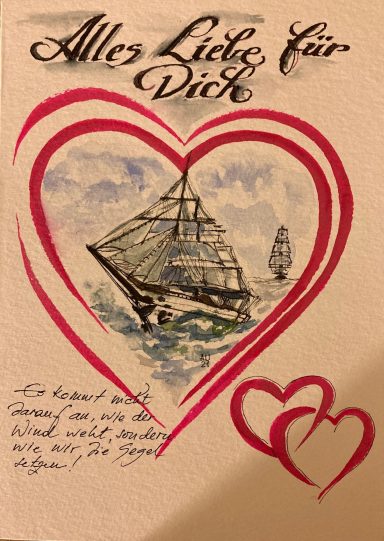 Alles Liebe für
Dich
Es kommt nicht
darauf an, wie der
Wind weht, sondern
wie wir die Segel
setzen!